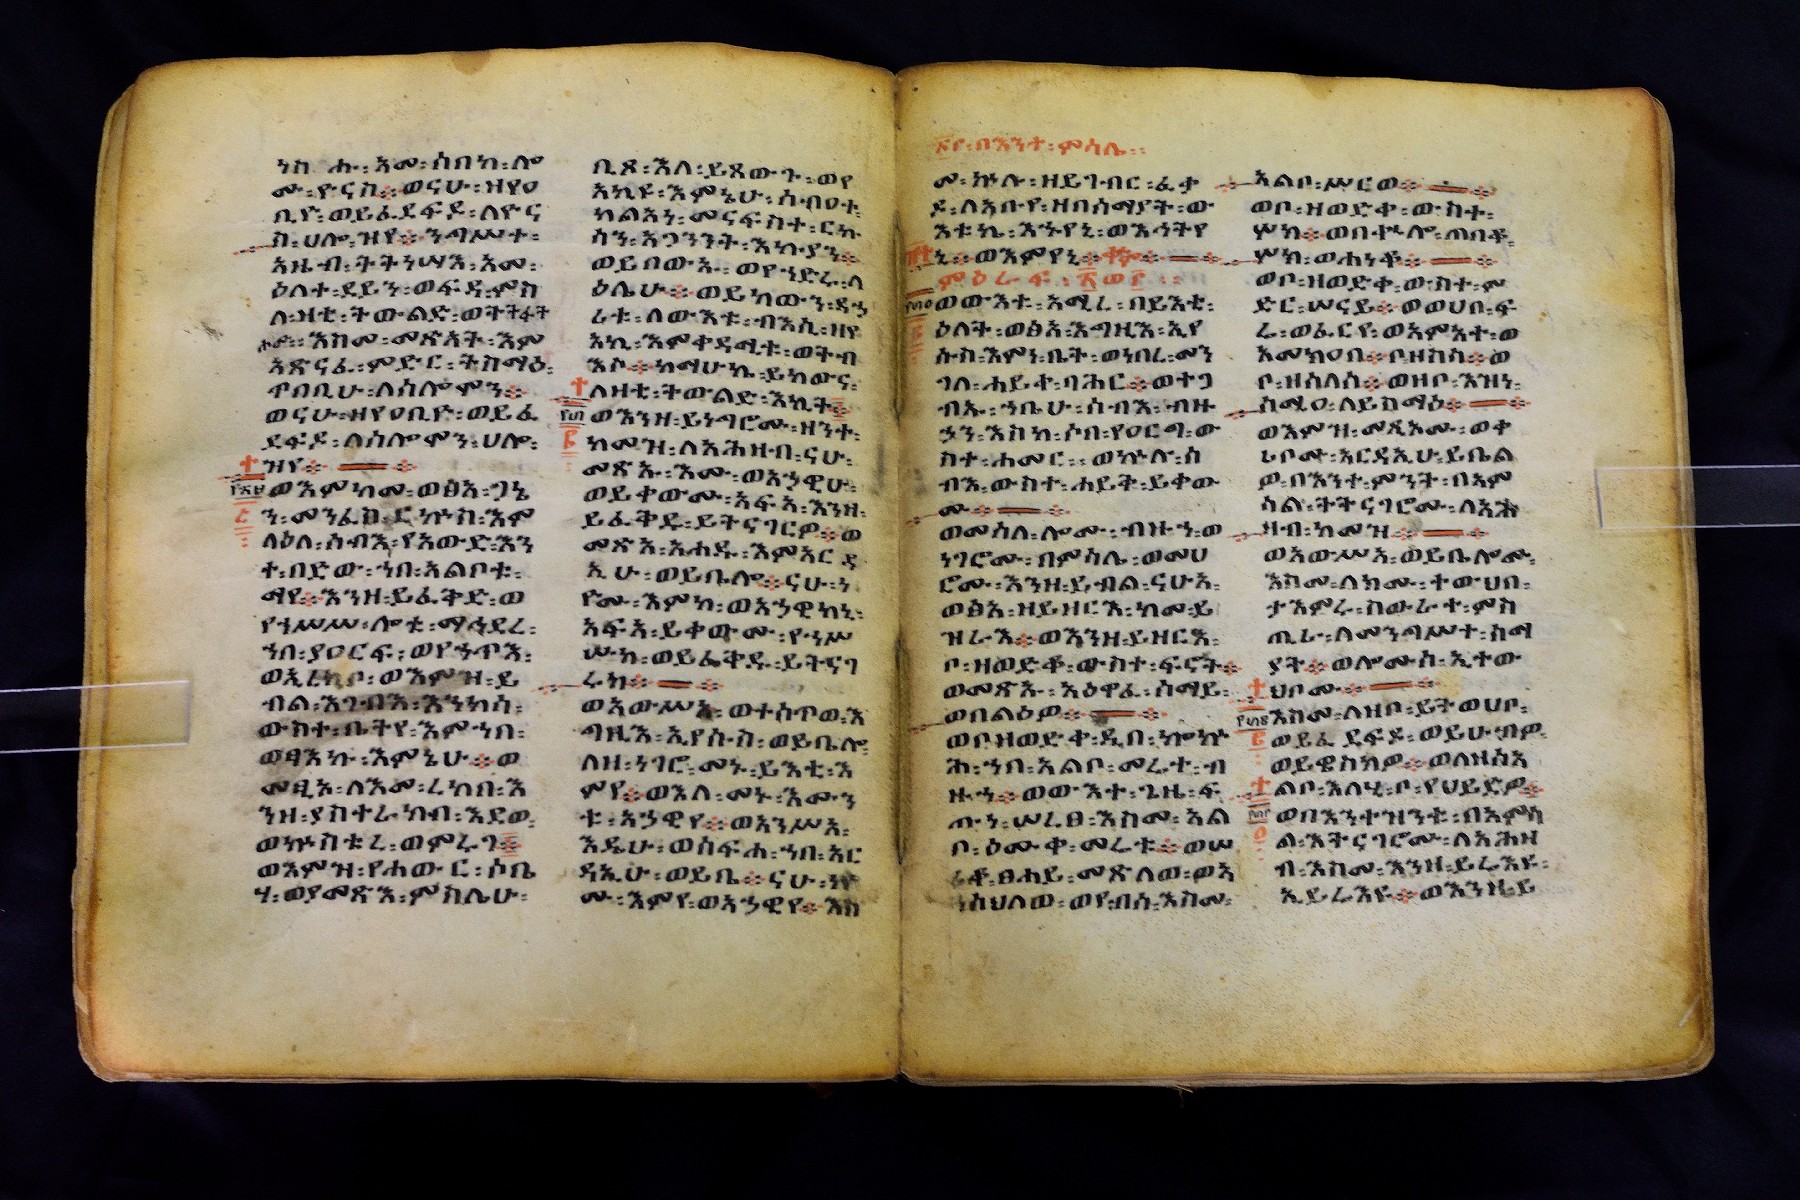 ነስሑ፡አመ፡ሰበከ፡ሎ
ሙ፡ዮናስ፨ወናሁ፡ዘየዐ
ቢዮ፡ወይፈደፍዶ፡ለዮና
ስ፡ሀሎ፡ዝየ፨ንግሥተ፡
አዜብ፡ትትነሣእ፡አመ፡
ዕለተ፡ደይን፡ወፍዳ፡ምስ
ለ፡ዛቲ፡ትውልድ፡ወትትፋት
ሖ፡እስመ፡መጽአት፡እም
አጽናፈ፡ምድር፡ትስማዕ፡
ጥበቢሁ፡ለሰሎሞን፨
ወናሁ፡ዘየዐቢዮ፡ወይፈ
ደፍዶ፡ለሰሎሞን፡ሀሎ፡
ዝየ፨
ወእምከመ፡ወፅአ፡ጋኔ
ን፡መንፈስ፡ርኩስ፡እም
ላዕለ፡ሰብእ፡የአውድ፡እን
ተ፡በድው፡ኀበ፡አልቦቱ፡
ማየ፨እንዘ፡ይፈቅድ፡ወ
የኀሥሥ፡ሎቱ፡ማኅደረ፡
ኀበ፡ያዐርፍ፡ወየኀጥእ፡
ወኢረክቦ፡ወእምዝ፡ይ
ብል፡እገብእ፡እንከሰ፡
ውስተ፡ቤትየ፡እምኀበ፡
ወፃእኩ፡እምኔሁ፨ወ
መጺኦ፡ለእመ፡ረከበ፡እ
ንዘ፡ያስተራክብ፡እደወ፡
ወኵስቱረ፡ወምሩገ፨
ወእምዝ፡የሐውር፡ሶቤ
ሃ፡ወያመጽእ፡ምስሌሁ፡
ቢጾ፡እለ፡ይጸውጉ፡ወየ
አኪዩ፡እምኔሁ፡ሰብዐተ፡
ካልአነ፡መናፍስተ፡ርኩ
ሳን፡አጋንንት፡እኩያን፨
ወይበውኡ፡ወየኀድሩ፡ላ
ዕሌሁ፨ወይከውን፡ዳኃ
ሪቱ፡ለውእቱ፡ብእሲ፡ዘየ
አኪ፡እምቀዳሚቱ፡ወትብ
እሶ፨ከማሁኬ፡ይከውና፡
ለዛቲ፡ትውልድ፡እኪት፨
ወእንዘ፡ይነግሮሙ፡ዘንተ፡
ከመዝ፡ለአሕዛብ፡ናሁ፡
መጽኡ፡እሙ፡ወአኃዊሁ፡
ወይቀውሙ፡አፍአ፡እንዘ፡
ይፈቅዱ፡ይትናገርዎ፨ወ
መጽአ፡አሐዱ፡እምአርዳ
ኢሁ፡ወይቤሎ፨ናሁ፡ነ
የሙ፡እምከ፡ወአኃዊከኒ፡
አፍአ፡ይቀውሙ፡የኀሥ
ሡከ፡ወይፌቅዱ፡ይትናገ
ሩከ፨
ወአውሥአ፡ወተሰጥወ፡እ
ግዚእ፡ኢየሱስ፡ወይቤሎ፡
ለዘ፡ነገሮ፡መኑ፡ይእቲ፡እ
ምየ፨ወእለ፡መኑ፡እሙን
ቱ፡አኃዊየ፨ወአንሥአ፡
እዴሁ፡ወሰፍሐ፡ኀበ፡አር
ዳኢሁ፡ወይቤ፨ናሁ፡ነዮ
ሙ፡እምየ፡ወአኃዊየ፨እስ
፩የ፡በእንተ፡ምሳሌ፡
መ፡ኵሉ፡ዘይገብር፡ፈቃ
ዶ፡ለአቡየ፡ዘበሰማያት፡ው
እቱኬ፡እኁየኒ፡ወእኅትየ
ኒ፨ወእምየኒ፨
ምዕራፍ፡፩ወ፫፡
ወውእቱ፡አሚረ፡በይእቲ፡
ዕለት፡ወፅአ፡እግዚእ፡ኢየ
ሱስ፡እምነ፡ቤት፡ወነበረ፡መን
ገለ፡ሐይቀ፡ባሕር፨ወተጋ
ብኡ፡ኀቤሁ፡ሰብእ፡ብዙ
ኃን፡እስከ፡ሶበ፡የዐርግ፡ው
ስተ፡ሐመር፡ወኵሉ፡ሰ
ብእ፡ውስተ፡ሐይቅ፡ይቀው
ሙ፨
ወመሰለ፡ሎሙ፡ብዙኀ፡ወ
ነገሮሙ፡በምሳሌ፡ወመሀ
ሮሙ፡እንዘ፡ይብል፡ናሁአ፡
ወፅአ፡ዘይዘርእ፡ከመ፡ይ
ዝራእ፨ወእንዘ፡ይዘርእ፡
ቦ፡ዘወድቀ፡ውስተ፡ፍናት፨
ወመጽኡ፡አዕዋፈ፡ሰማይ፡
ወበልዕዎ፨
ወቦ፡ዘወድቀ፡ዲበ፡ኰኵ
ሕ፡ኀበ፡አልቦ፡መሬተ፡ብ
ዙኀ፨ወውእተ፡ጊዜ፡ፍ
ጡነ፡ሠረፀ፡እስመ፡አል
ቦ፡ዕሙቀ፡መሬቱ፨ወሠ
ሪቆ፡ፀሐይ፡መጽለወ፡ወአ
ንስሀለወ፡ወየብሰ፡እስመ፡
አልቦ፡ሥርወ፨
ወቦ፡ዘወድቀ፡ውስተ፡
ሦክ፨ወበተኵሎ፡ጠበቆ፡
ሦክ፡ወሐነቆ፨
ወቦ፡ዘወድቀ፡ውስተ፡ም
ድር፡ሠናይ፨ወወሀበ፡ፍ
ሬ፡ወፈርየ፡ወአምአተ፡ወ
አመክዐበ፨ቦ፡ዘስሳ፨ወ
ቦ፡ዘሰላሳ፨ወዘቦ፡እዝነ፡
ሰሚዐ፡ለይስማዕ፨
ወእምዝ፡መጺኦሙ፡ወቀ
ሪቦሙ፡አርዳኢሁ፡ይቤል
ዎ፡በእንተ፡ምንት፡በአም
ሳል፡ትትናገሮሙ፡ለአሕ
ዛብ፡ከመዝ፨
ወአውሥአ፡ወይቤሎሙ፡
እስመ፡ለክሙ፡ተውህበ፡
ታእምሩ፡ስውራተ፡ምስ
ጢራ፡ለመንግሥተ፡ሰማ
ያት፨ወሎሙሰ፡ኢተው
ህቦሙ፨
እስመ፡ለዘቦ፡ይትወሀቦ፡
ወይፈደፍዶ፡ወይሁብዎ፡
ወይዌስክዎ፨ወለዘሰአ
ልቦ፡እለሂ፡ቦ፡የሀይድዎ፨
ወበእንተዝንቱ፡በአምሳ
ል፡እትናገሮሙ፡ለአሕዛ
ብ፡እስመ፡እንዘ፡ይሬእዩ፡
ኢይሬእዩ፨ወእንዘ፡ይ